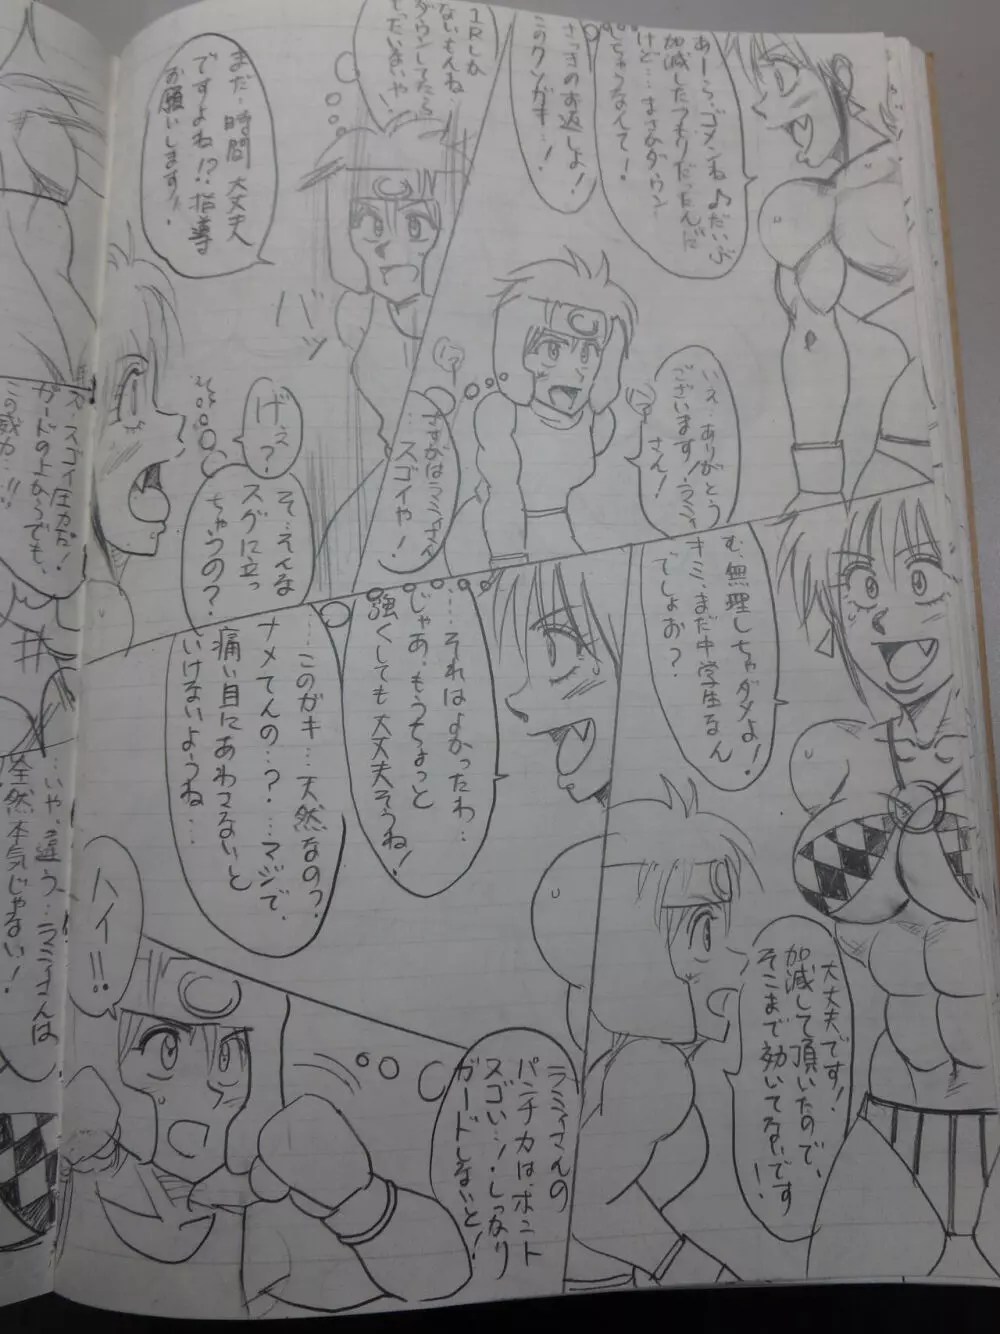 あーら、ゴメンね♪だいぶ
加減したつもりだったんだ
けど…まさかダウン
しちゃうなんて!
さっきのお返しよ!
このクソガキ…!
いえ…ありがとう
ございます!ラミィ
さん!
さすがはラミィさん
…スゴイや!
1Rしか
ないもんね…
ダウンしてたら
もったいないや
まだ…時間大丈夫
ですよね!?指導
お願いします!!
バッ
げぇ?
そ…そんな
スグに立っ
ちゃうの?
む、無理しちゃダメよ!
キミ、まだ中学生なん
でしょお?
大丈夫です!
加減して頂いたので、
そこまで効いてないです!
…それはよかったわ…
じゃあ。もうちょっと
強くしても大丈夫そうね!
…このガキ…天然なの?
ナメてんの…?…マジで、
痛い目にあわさないと
いけないようね…
ラミィさんの
パンチ力は、ホント
スゴい…!しっかり
ガードしないと!
ハイ!!
ス、スゴイ圧力だ!
ガードの上からでも、
この威力…!!
…いや、違う…ラミィさんは
全然本気じゃない!